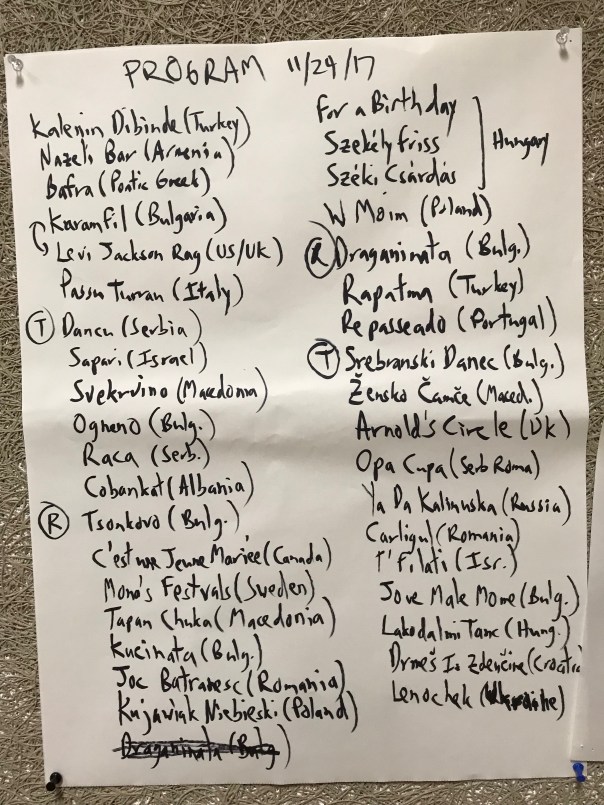 PROGRAM 11/24/17
Kalenin Dibinde (Turkey)
Nazeli Bar (Armenia)
Bafra (Pontic Greek)
Karamfil (Bulgaria)
Levi Jackson Rag (US/UK)
Passu Turran (Italy)
T Dancu (Serbia)
Sapari (Israel)
Svekrvino (Macedonia)
Ogneno (Bulg.)
Raca (Serb.)
Cobankat (Albania)
R Tsonkovo (Bulg.)
C'est une Jeune Mariée (Canada)
Mono's Festvals (Sweden)
Tapan Chuka (Macedonia)
Kucinata (Bulg.)
Joc Batranesc (Romania)
Kujawiak Niebieski (Poland)
Draganinata (Bulg.)
For a Birthday
Székely Friss
Széki Csárdás
Hungary
W Moim (Poland)
R Draganinata (Bulg.)
Rapatma (Turkey)
Repasseado (Portugal)
T Srebranski Danec (Bulg.)
Žensko Čamče (Maced.)
Arnold's Circle (UK)
Opa Cupa (Serb Roma)
Ya Da Kalinuska (Russia)
Carligul (Romania)
T'filati (Isr.)
Jove Male Mome (Bulg.)
Lakodalmi Tanc (Hung.)
Drmeš Iz Zdenčine (Croatia
Lenochek